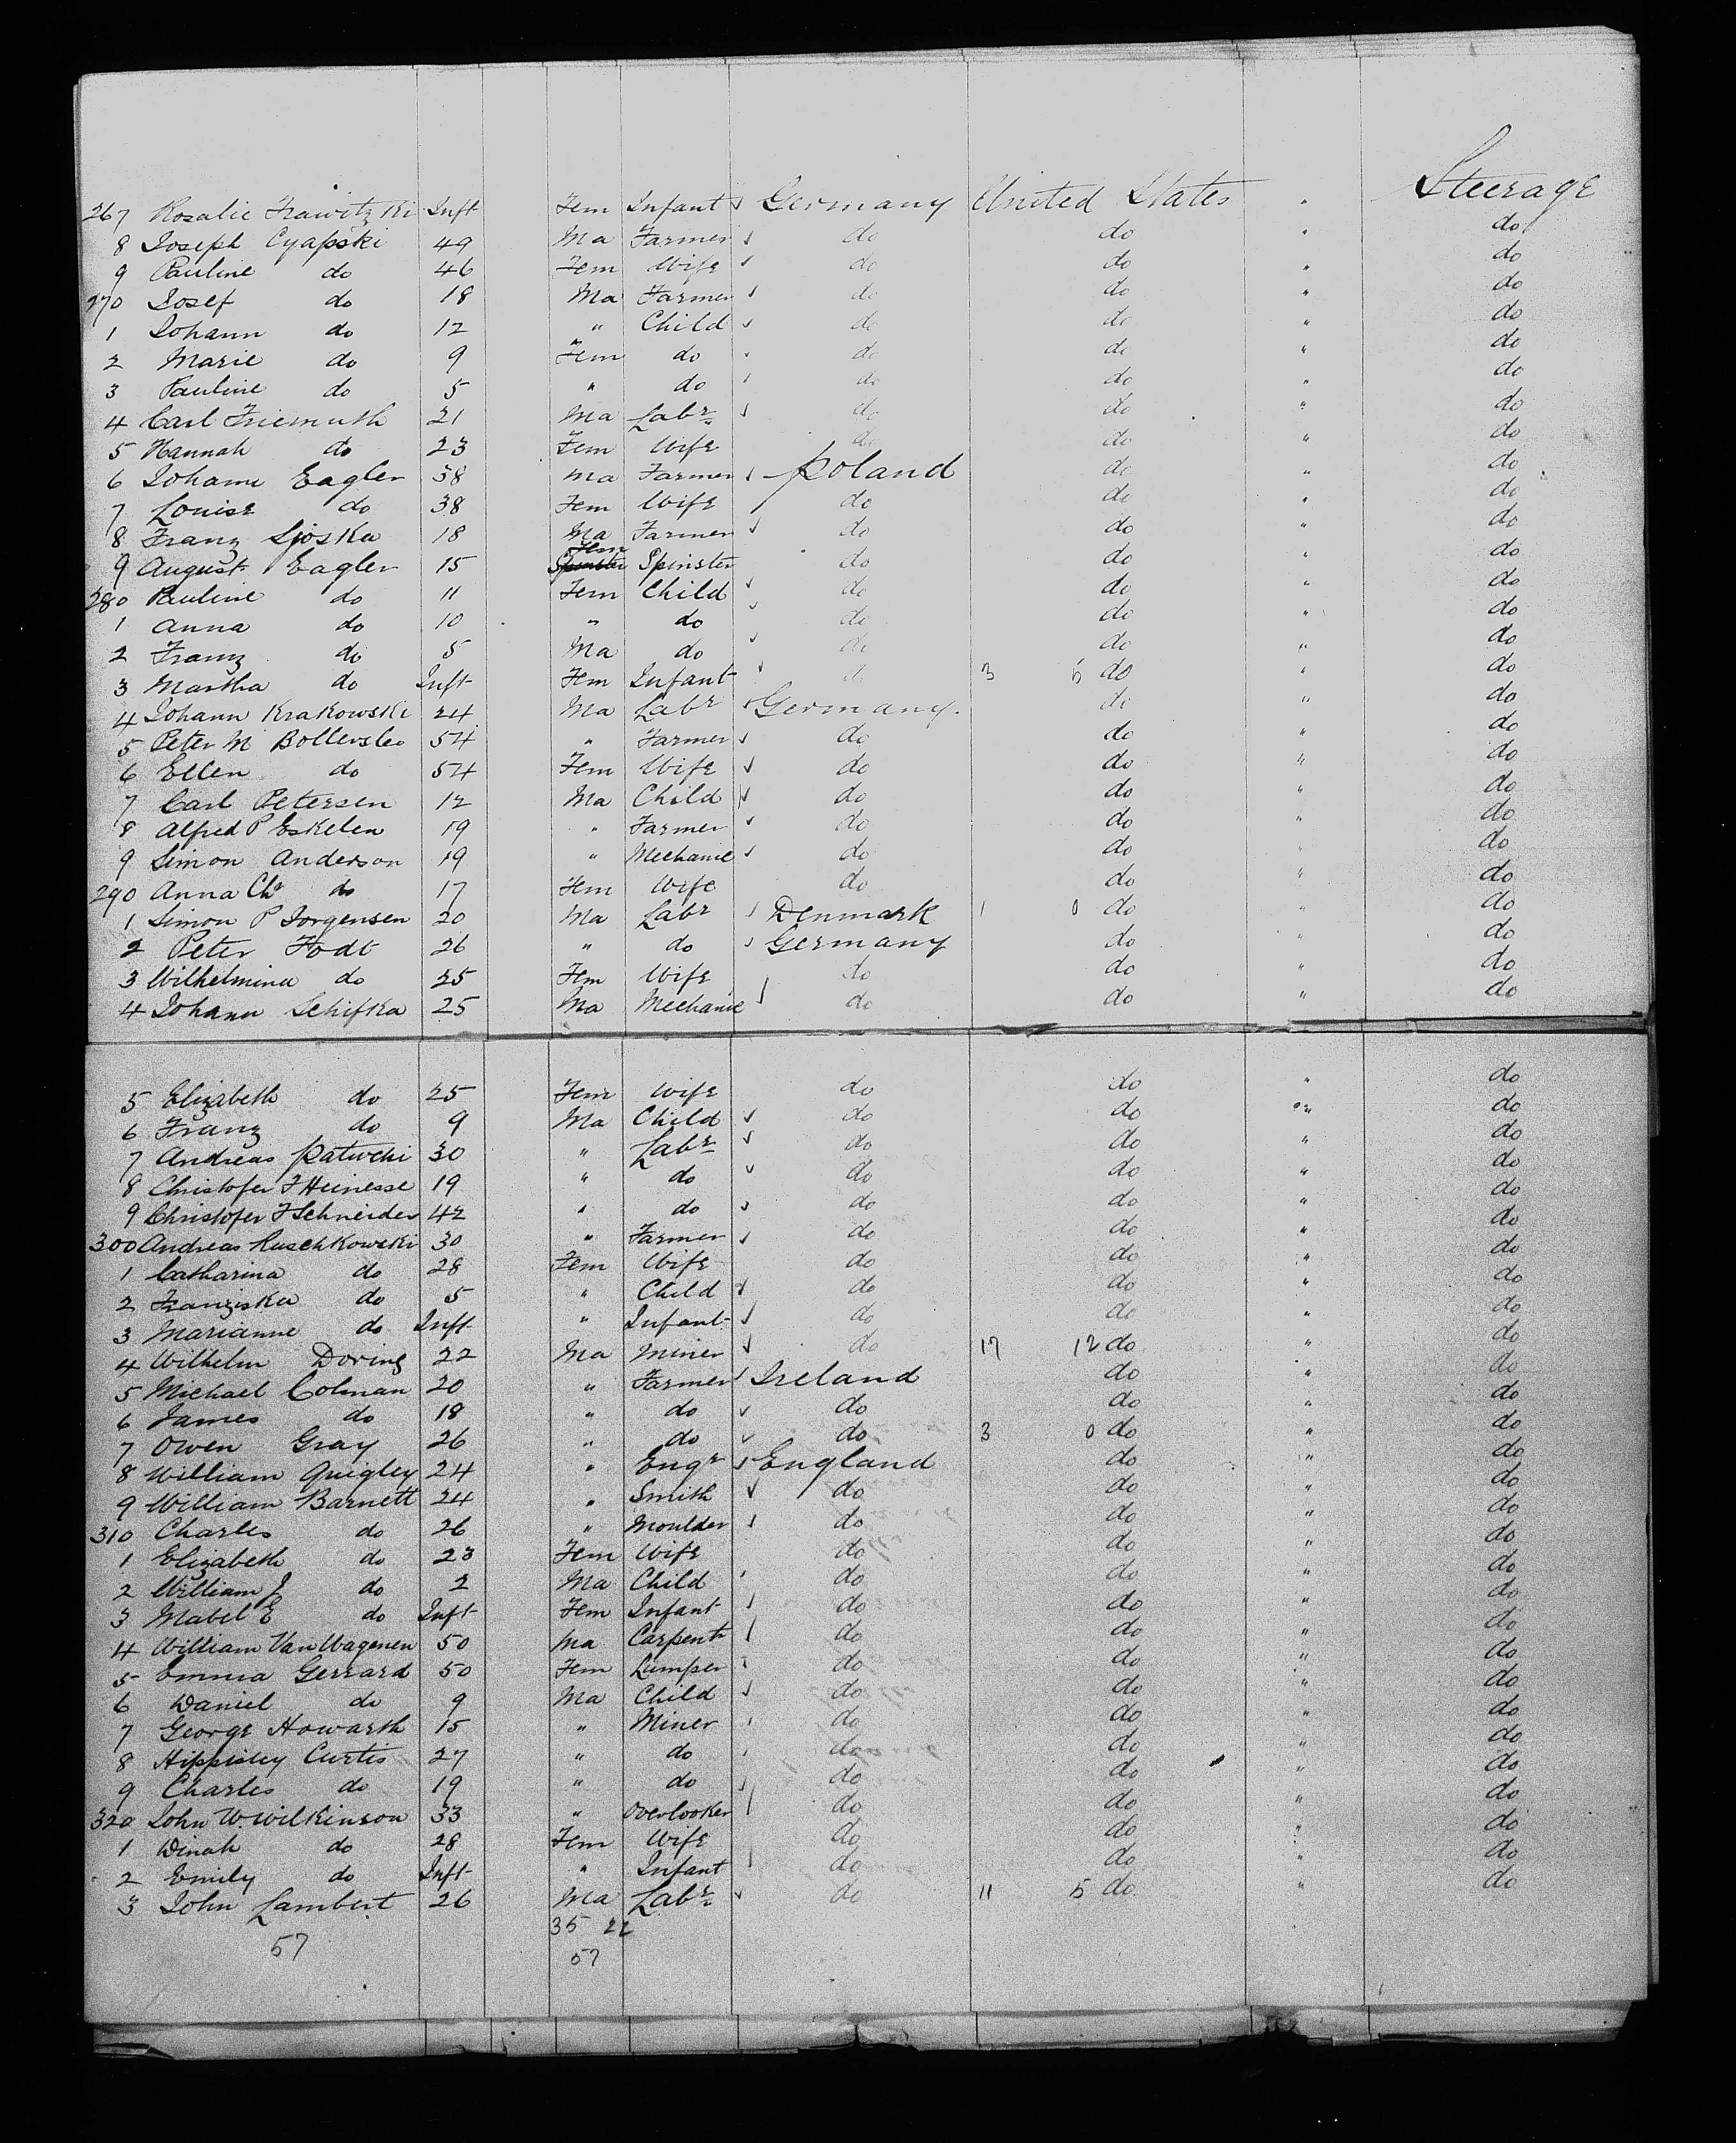 267 Rosalie Trawitzki Inft Fem Infant Germany United States " Steerage
8 Joseph Cyapski 49 Ma Farmer do do " do
9 Pauline do 46 Fem Wife do do " do
270 Josef do 18 Ma Farmer do do " do
1 Johann do 12 " Child do do " do
2 Marie do 9 Fem do do do " do
3 Pauline do 5 " do do do " do
4 Carl Friemuth 21 Ma Labr do do " do
5 Hannah do 23 Fem Wife do do " do
6 Johann Eagler 38 Ma Farmer Poland do " do
7 Louise do 38 Fem Wife do do " do
8 Franz Sjoska 18 Ma Farmer do do " do
9 August Eagler 15 Spinster Fem Spinster do do " do
280 Pauline do 11 Fem Child do do " do
1 Anna do 10 " do do do " do
2 Franz do 5 Ma do do do " do
3 Martha do Inft Fem Infant do 3 5 do " do
4 Johann Krakowski 24 Ma Labr Germany do " do
5 Peter M Bollerslev 54 " Farmer do do " do
6 Ellen do 54 Fem Wife do do " do
7 Carl Petersen 12 Ma Child do do " do
8 Alfred P Eskelen 19 " Farmer do do " do
9 Simon Anderson 19 " Mechanic do do " do
290 Anna Chr do 17 Fem Wife do do " do
1 Simon P Jorgensen 20 Ma Labr Denmark 1 0 do " do
2 Peter Fodt 26 " do Germany do " do
3 Wilhelmina do 25 Fem Wife do do " do
4 Johann Schifka 25 Ma Mechanic do do " do
5 Elizabeth do 25 Fem Wife do do " do
6 Franz do 9 Ma Child do do " do
7 Andreas Patwchi 30 " Labr do do " do
8 Christofer F Heinesse 19 " do do do " do
9 Christofer F Schneider 42 " do do do " do
300 Andreas Ruschkowski 30 " Farmer do do " do
1 Catharina do 28 Fem Wife do do " do
2 Franziska do 5 " Child do do " do
3 Marianne do Inft " Infant do do " do
4 Wilhelm Doring 22 Ma Miner do 17 12 do " do
5 Michael Colman 20 " Farmer Ireland do " do
6 James do 18 " do do do " do
7 Owen Gray 26 " do do 3 0 do " do
8 William Quigley 24 " Engr England do " do
9 William Barnett 24 " Smith do do " do
310 Charles do 26 " Moulder do do " do
1 Elizabeth do 23 Fem Wife do do " do
2 William J do 2 Ma Child do do " do
3 Mabel E do Inft Fem Infant do do " do
4 William Van Wagenen 50 Ma Carpent do do " do
5 Emma Gerrard 50 Fem Lumper do do " do
6 Daniel do 9 Ma Child do do " do
7 George Howarth 15 " Miner do do " do
8 Hippisley Curtis 27 " do do do " do
9 Charles do 19 " do do do " do
320 John W. Wilkinson 33 " Overlooker do do " do
1 Dinah do 28 Fem Wife do do " do
2 Emily do Inft " Infant do do " do
3 John Lambert 26 Ma Labr do 11 5 do " do
35 22
57 57